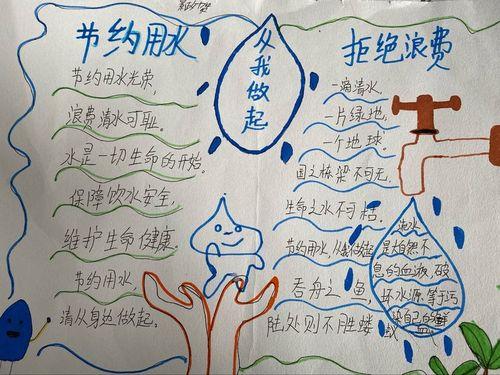 节约用水
节约用水光荣,
浪费清水可耻。
水是一切生命的开始。
保障饮水安全,
维护生命健康。
节约用水,
请从身边做起。
从我做起
拒绝浪费
一滴清水,
一片绿地,
一个地球。
国之栋梁不可无,
生命之水不可枯。
节约用水,从我做起
吞舟之鱼,
陆处则不胜蝼
海水
是大自然不
息的血液,破
坏水源等于污
染自己的鲜